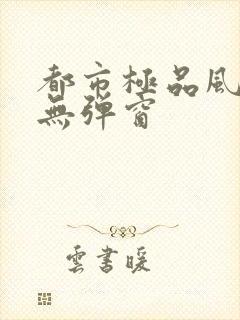 都市極品風
無彈窗
雲書暖